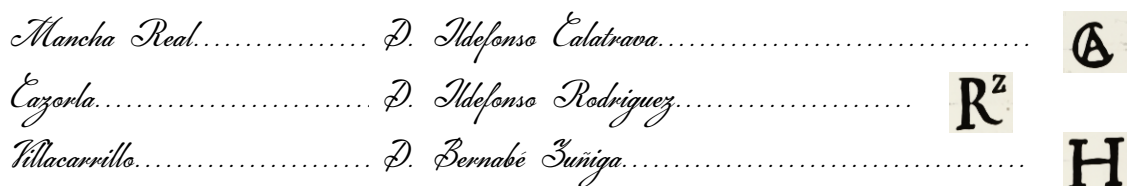 Mancha Real.................. D. Ildefonso Calatrava...................................... CA
Cazorla............................. D. Ildefonso Rodriguez......................... Rz
Villacarrillo......................... D. Bernabé Zuñiga........................................... H